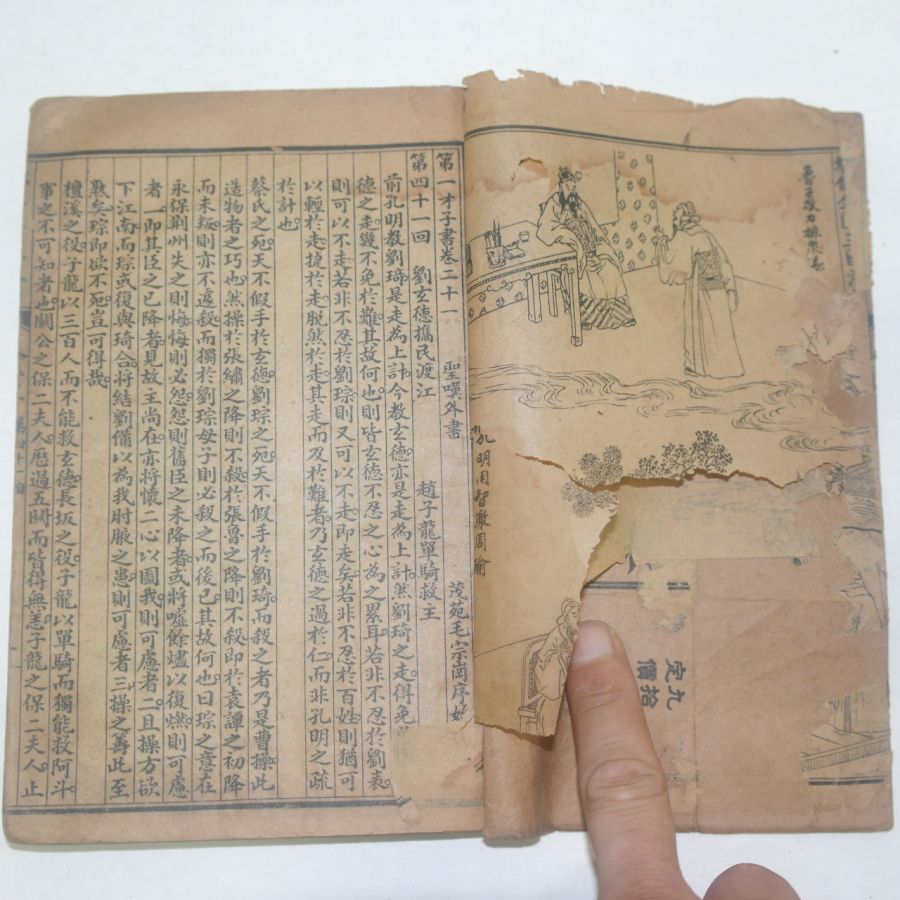 魯子敬力排眾議
孔明用智激周瑜
定價
九拾
第一才子書卷二十一 聖嘆外書 茂苑毛宗崗序始
第四十一回 劉玄德攜民渡江 趙子龍單騎救主
前孔明教劉琦是走為上計今教玄德亦是走為上計然劉琦之走得免
德之走幾不免於難其故何也則皆玄德不忍之心為之累耳若非不忍於劉表
則可以不走若非不忍於劉琮則又可以不走即走矣若非不忍於百姓則猶可
以輕於走捷於走脫然於走其走而及於難者乃玄德之過於仁而非孔明之疏
於計也
蔡氏之死天不假手於玄德劉琮之死天不假手於劉琦而殺之者乃是曹操此
造物者之巧也然操於張繡之降則不殺於張魯之降則不殺即於袁譚之初降
而未叛則亦不遽殺而獨於劉琮母子則必殺之而後已其故何也曰琮之意在
永保荊州失之則悔悔則必怨怨則舊臣之未降者或將噓餘燼以復燃則可慮
者一即其臣之已降者見故主尚在亦將懷二心以圖我則可慮者二且操方欲
下江南而琮或復與琦合將結劉備以為我肘腋之患則可慮者三操之籌此至
熟矣琮即欲不死豈可得哉
檀溪之役子龍以三百人而不能救玄德長坂之役子龍以單騎而獨能救阿斗
事之不可知者也關公之保二夫人歷過五關而皆得無恙子龍之保二夫人止
第四十一回